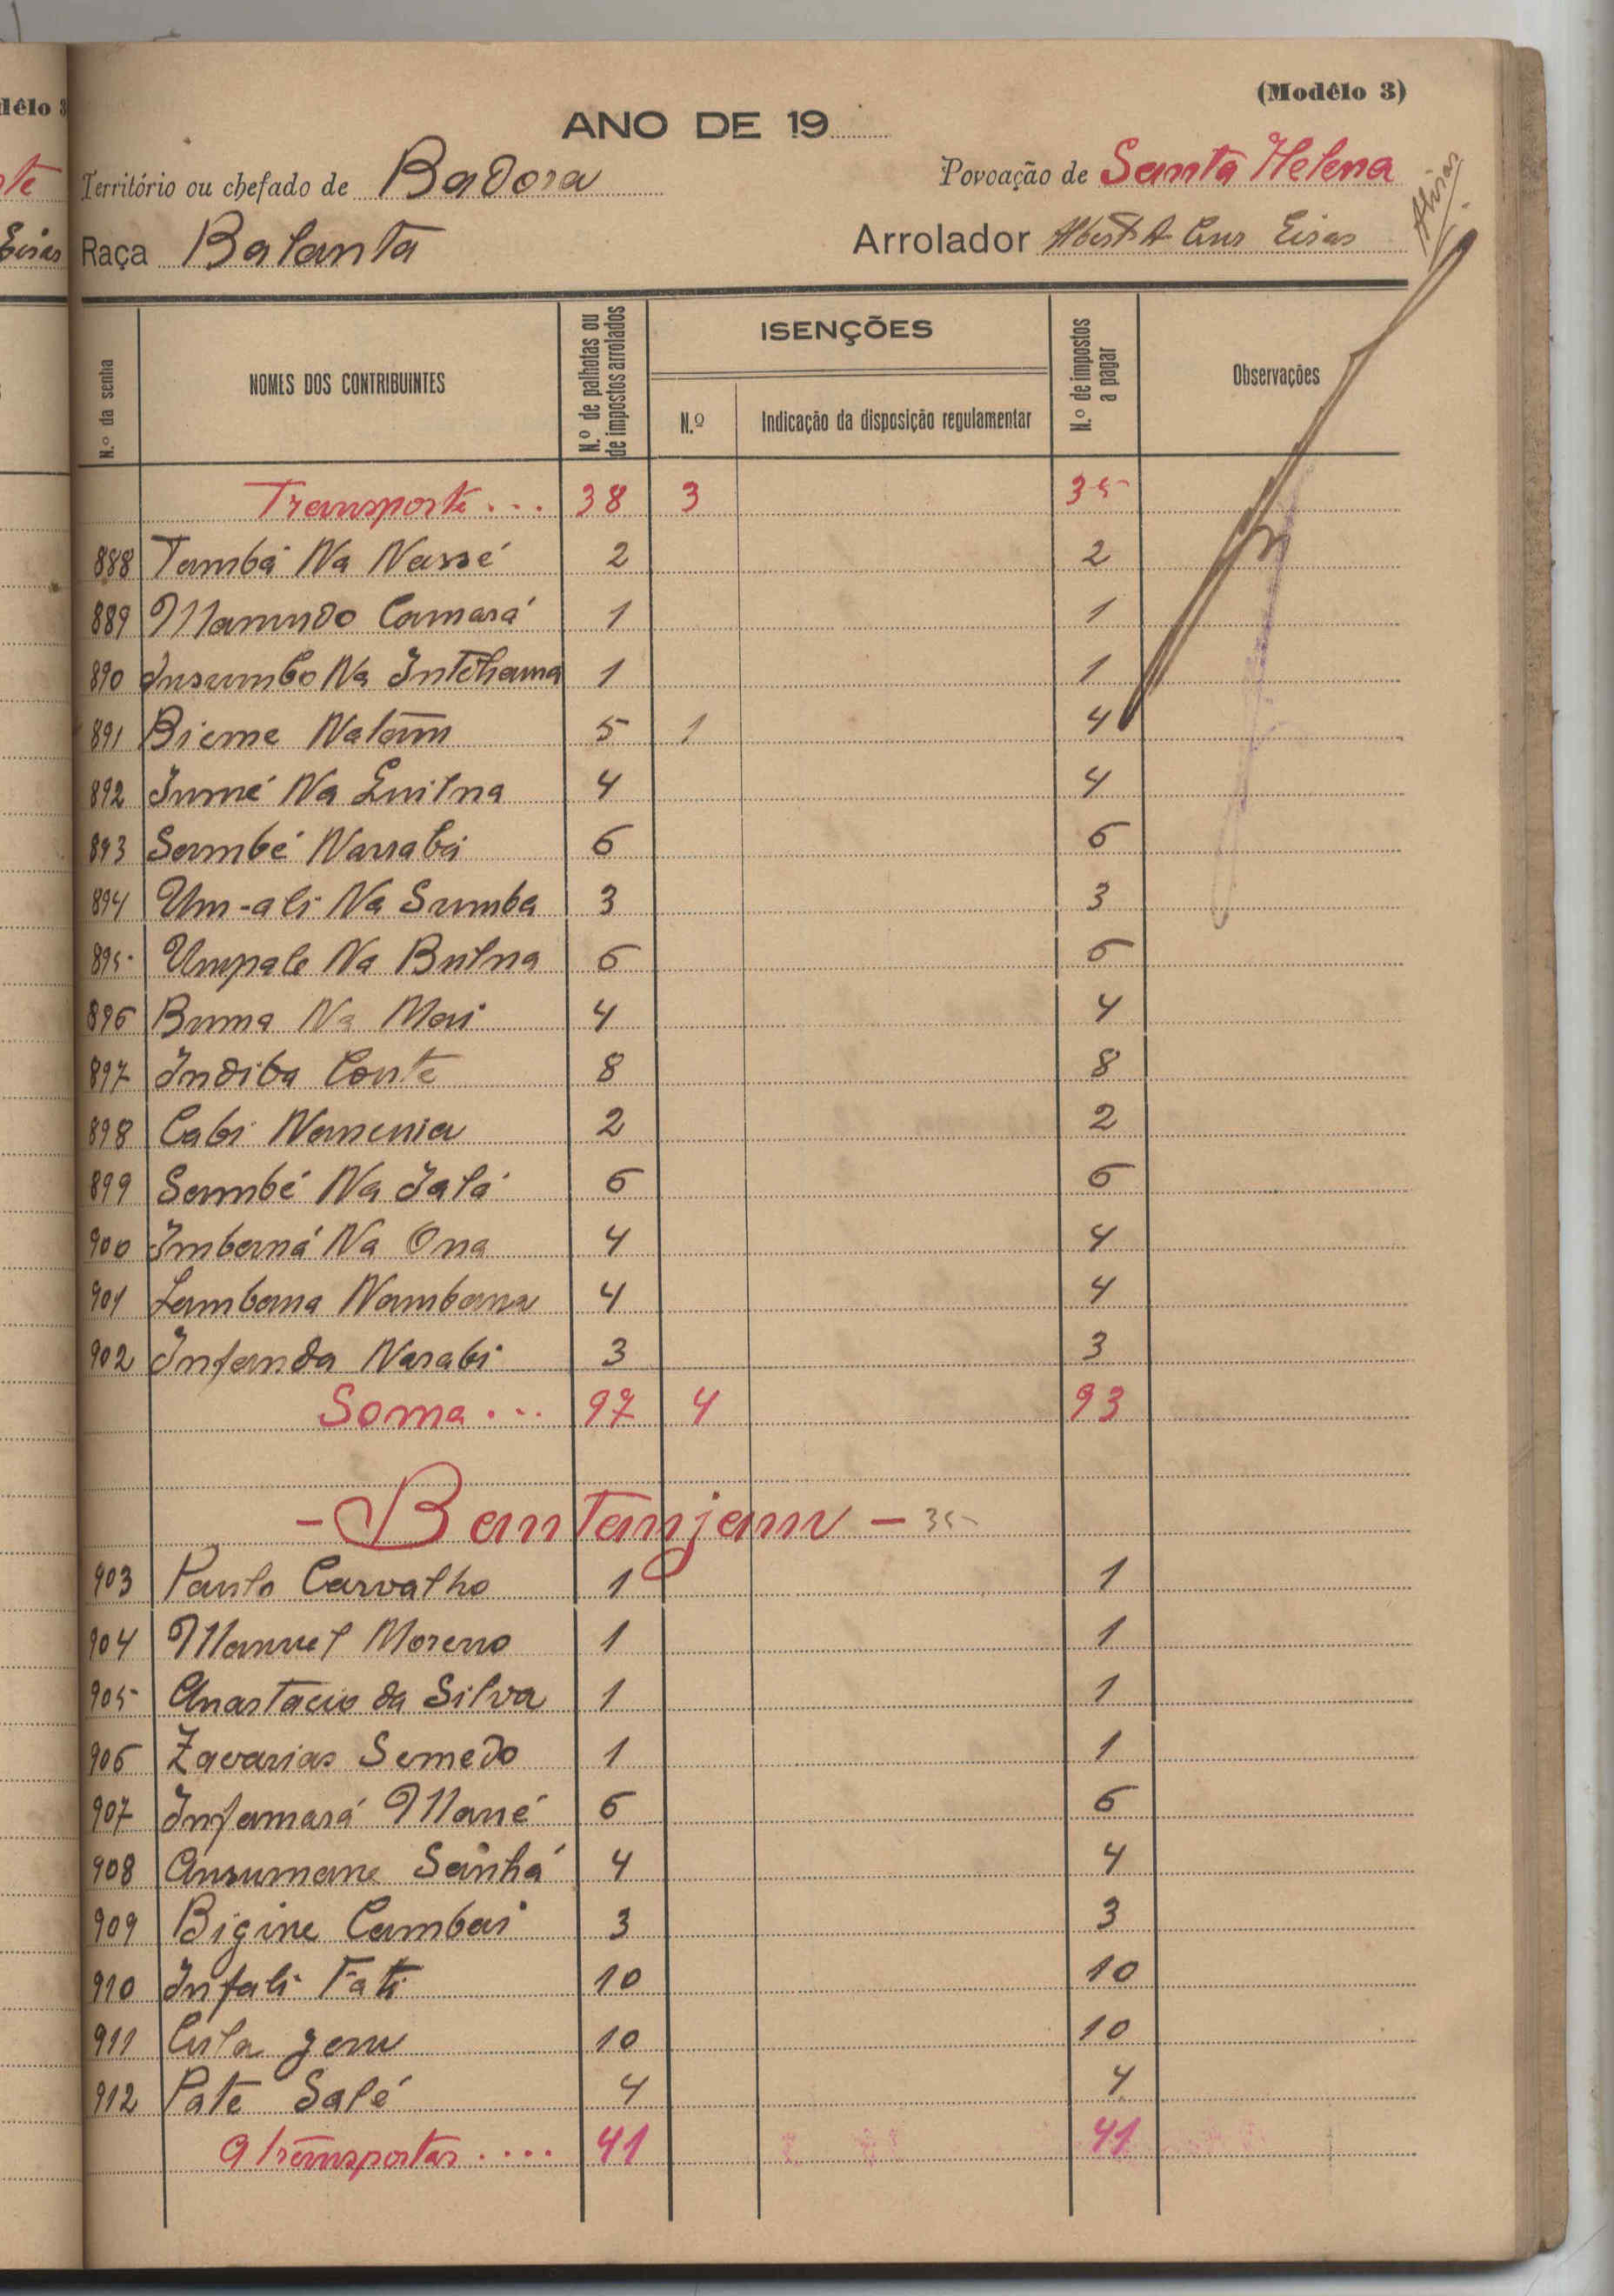 (Modêlo 3)
ANO DE 19
Território ou chefado de Badora Povoação de Santa Helena
Raça Balanta Arrolador
N.º da senha
NOMES DOS CONTRIBUINTES
N.º de palhotas ou de impostos arrolados
ISENÇÕES
N.º
Indicação da disposição regulamentar
N.º de impostos a pagar
Observações
Transporte... 38 3 35
888 Tambá Na Nassé 2 2
889 Mamudo Camará 1 1
890 Insumbo Na Intchama 1 1
891 Bieme Natam 5 1 4
892 Jumé Na Guilna 4 4
893 Sambé Narrabi 6 6
894 Um-ali Na Sumba 3 3
895 Umpale Na Builna 6 6
896 Buma Na Mai 4 4
897 Indiba Conte 8 8
898 Cabi Namenia 2 2
899 Sambé Na Jalá 6 6
900 Imbaná Na Ona 4 4
901 Lambana Nambana 4 4
902 Infanda Narabi 3 3
Soma... 97 4 93
- Bantanjam - 35
903 Paulo Carvalho 1 1
904 Manuel Moreno 1 1
905 Anastacio da Silva 1 1
906 Zacarias Semedo 1 1
907 Infamará Mané 6 6
908 Ansumane Sanhá 4 4
909 Bigine Cambai 3 3
910 Infali Fati 10 10
911 10 10
912 Pate Salé 4 4
A transportar.... 41 41